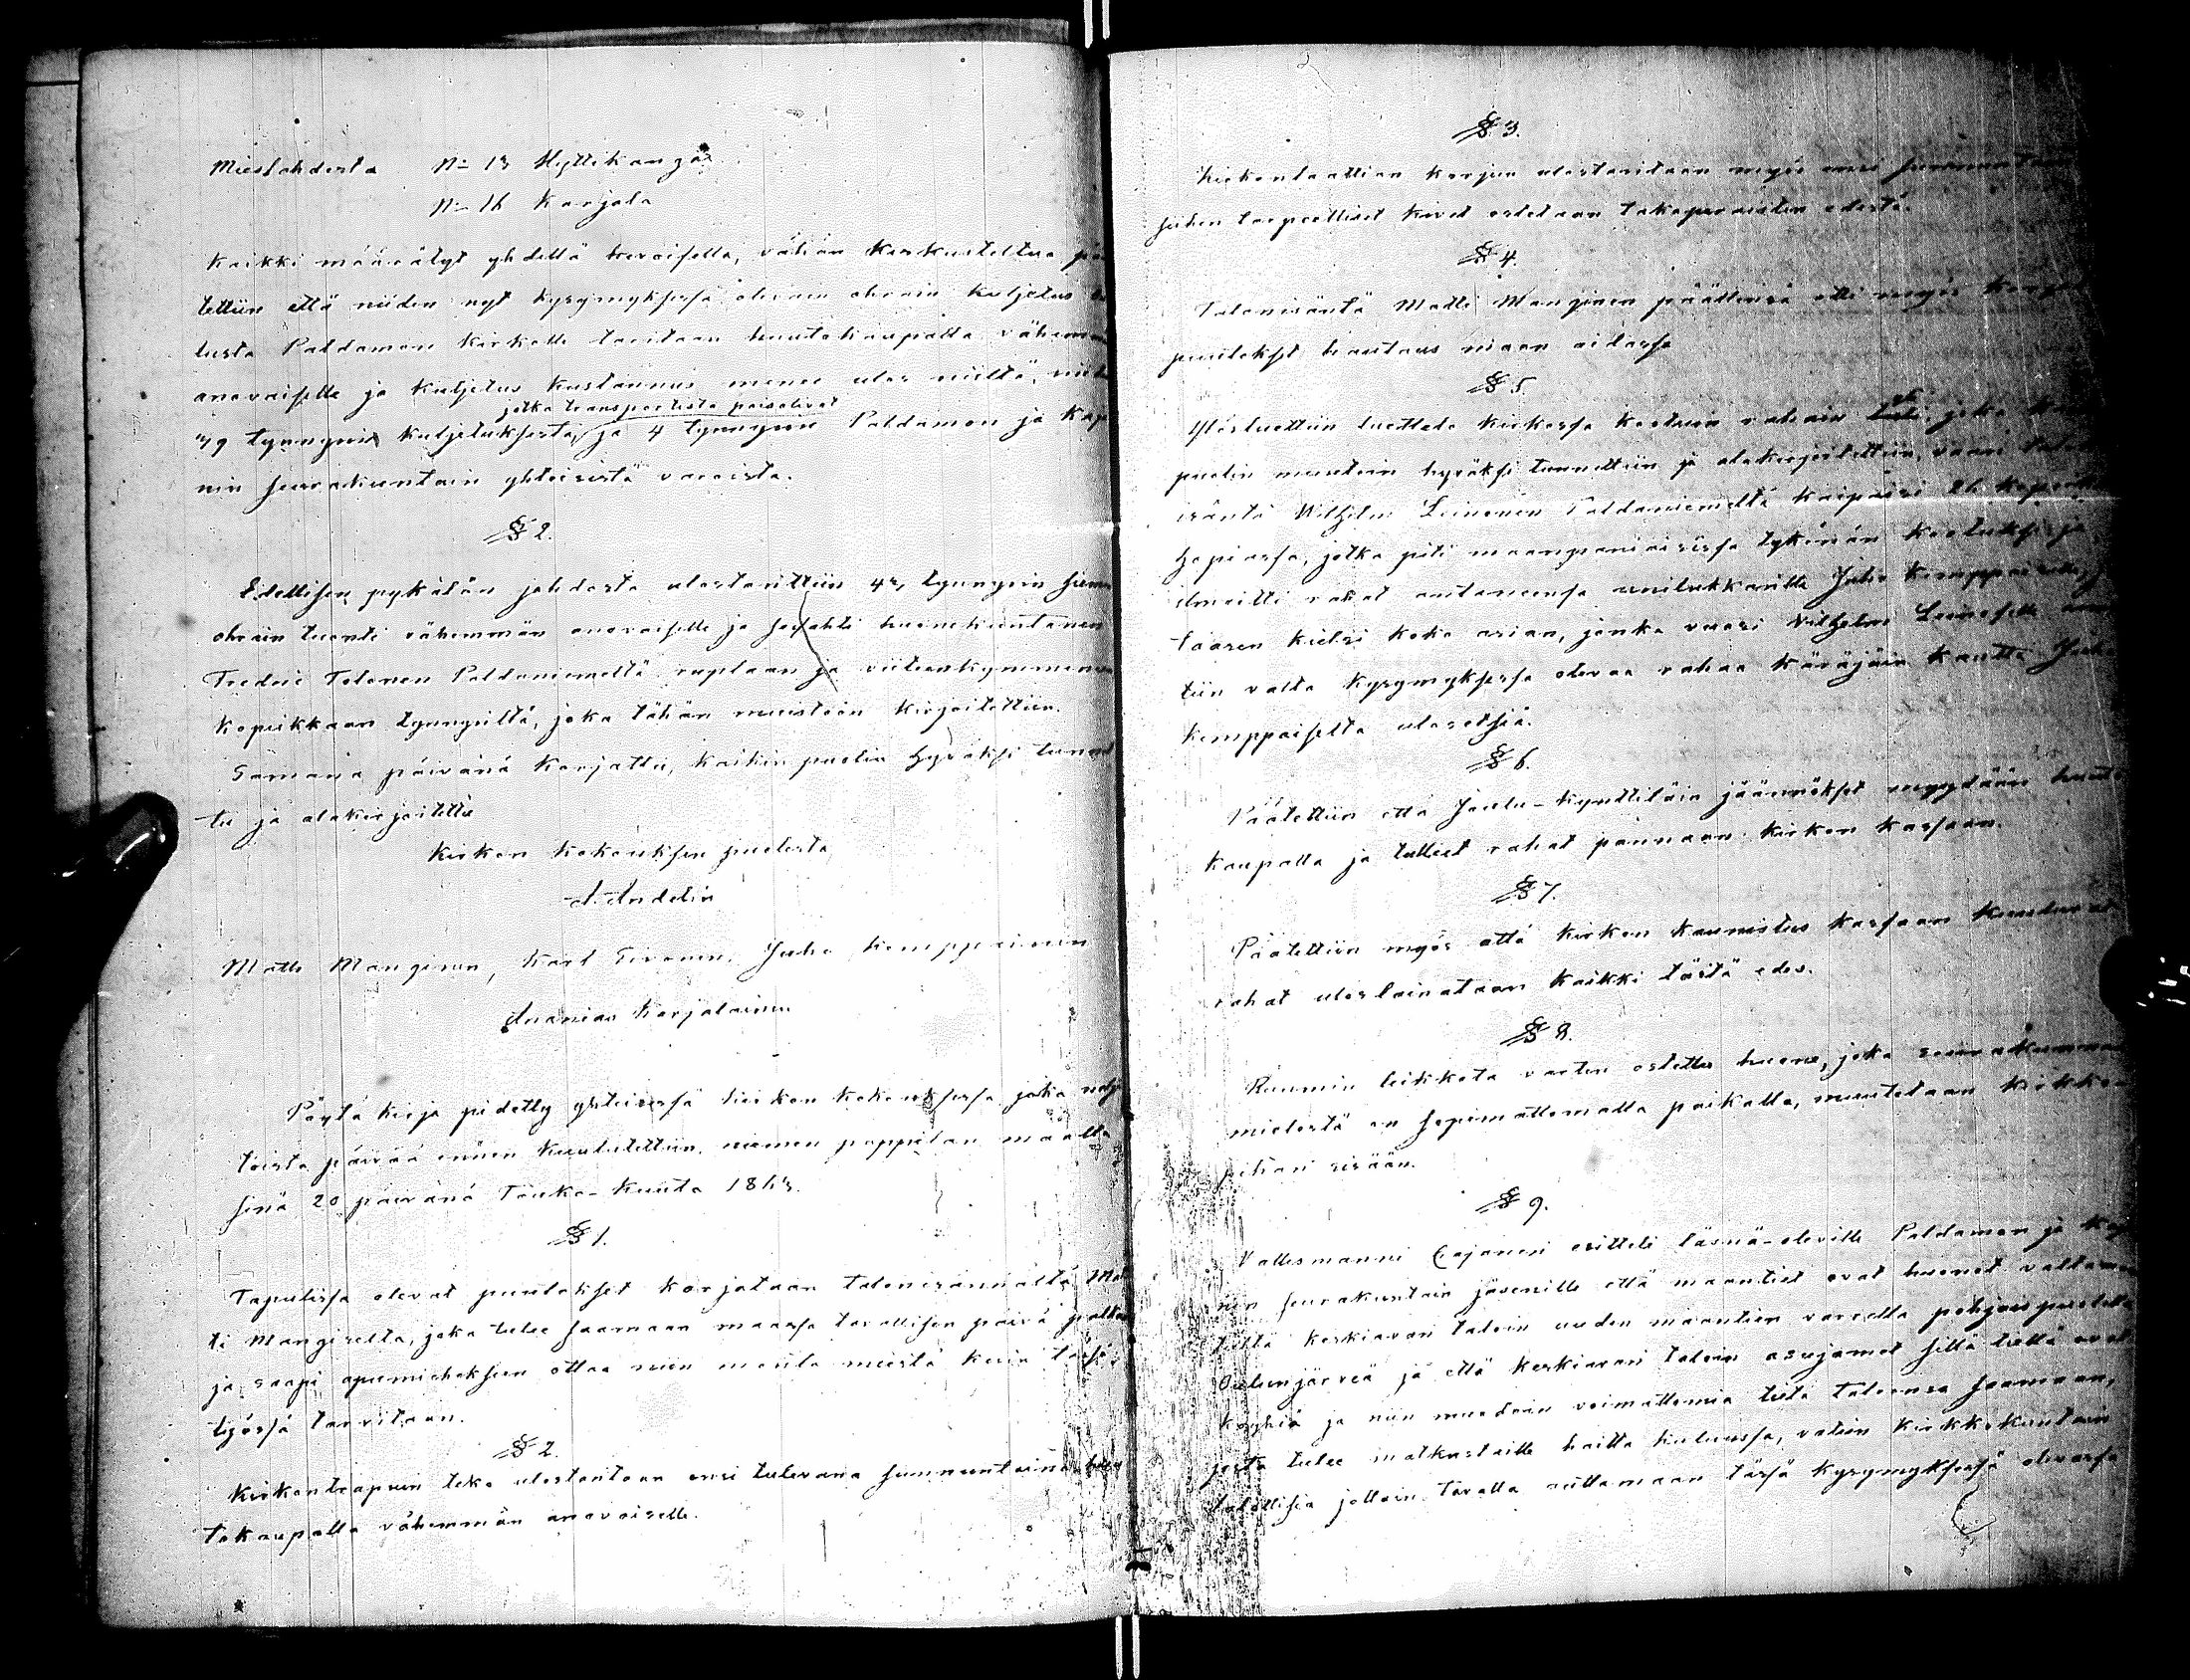 Mieslahdesta N:o 13 Hyttikangas
N:o 16 Karjala
Kaikki määrätyt yhdellä keroisella, vähän keskusteltua pää
tettiin että niiden nyt kysymyksessä olevain ohrain kuljetus
lusta Paldamon kirkolle taritaan huutokaupalla vähemmän
anovaiselle ja kuljetus kustannus menee ulos niiltä,
jotka transportista paisolivat
79 tynnyrin kuljetuksesta, ja 4 tynnyrin Paldamon ja Kaja
nin seurakuntain yhteisistä varoista.
§ 2.
Edellisen pykälän johdosta ulostarittiin 43 tynnyrin siemen
ohrain tuonti vähemmän anovaiselle ja sen huonekuntanen
Fredric Tolonen Paldaniemeltä ruplaan ja viiteenkymmeneen
kopeikkaan tynnyriltä, joka tähän muistoon kirjoitettiin.
Samana päivänä korjattu, kaikin puolin hyväksi tunnet
tu ja alakirjoitettu
Kirkon kokouksen puolesta
A. Andelin
Matti Manginen, Karl Tironen, Juho Kemppainen
Ananias Karjalainen
Pöytäkirja pidetty yhteisessä kirkon kokouksessa joka nelj
toista päivää ennen kuulutettiin, niemen pappilan maalla
sinä 20 päivänä Touko-kuuta 1863.
§ 1.
Tapulissa olevat puutokset korjataan talonisännältä Mat
ti Mangiselta, joka tulee saamaan maassa tavallisen päivä palkan
ja saapi apumieheksen ottaa niin monta miestä kuin tässä
työssä tarvitaan.
§ 2.
Kirkontrapuin teko ulostaritaan ensi tulevana sunnuntaina huu
tokaupalla vähemmän anovaiselle.
§ 3.
Kirkonlaattian korjuu ulostaritaan myös ensi sunnuntaina
siihen tarpeelliset kivet ostetaan takaperaisten edestä.
§ 4.
Talonisäntä Matti Manginen päällensä otti myös korjata
puutokset hautaus maan aidassa
§ 5.
Ylösluettiin luettelo kirkossa kootuin rahain joka
puolin muutoin hyväksi tunnettiin ja alakirjoitettiin, vaan talon
isäntä Wilhelm Leinonen Paldaniemeltä kaipaisi 26 kopeikkaa
hopiassa, jotka piti maanpaniaisissa tykönän kootuksi ja
ilmoitti rahat antaneensa unilukkarille Juho Kemppaiselle,
taasen kielsi koko asian, jonka vuoksi Wilhelm Leinoselle annet
tiin valta kysymyksessä olevaa rahaa käräjäin kautta Juho
Kemppaiselta ulosetsiä.
§ 6.
Päätettiin että Joulu-kynttiläin jäännökset myydään huuto
kaupalla ja tulleet rahat pannaan kirkon kassaan.
§ 7.
Päätettiin myös että kirkon kaunistus kassaan kuuluvat
rahat uloslainataan kaikki tästä edes.
§ 8.
Ruumin leikkota varten ostettu huone, joka seurakunnan
mielestä on sopimattomalla paikalla, muutetaan kirkko
pihan sisään.
§ 9.
Vallesmanni Cajaneri esitteli läsnä-oleville Paldamon ja Kaja
nin seurakuntain jäsenille että maantiet ovat huonot valtaman
tiltä keskiavan taloin uuden maantien varrella pohjaispuolella
Oulunjärveä ja että keskiavan taloin asujamet sillä tiellä ovat
köyhiä ja niin muodoin voimattomia teitä taloonsa saamaan,
josta tulee matkustaille haitta kulussa, vaatein kirkkokuntain
talollisia jollain tavalla auttamaan tässä kysymyksessä olevassa